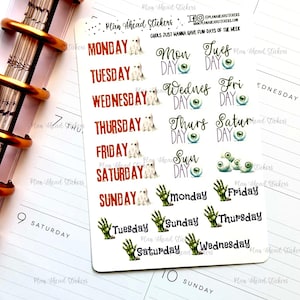 Plan Ahead Stickers
GHOULS JUST WANNA HAVE FUN DAYS OF THE WEEK
MONDAY
Mon DAY
Tues DAY
TUESDAY
WEDNESDAY
Wednes DAY
Fri DAY
THURSDAY
Thurs DAY
Satur DAY
FRIDAY
SATURDAY
Sun DAY
SUNDAY
Monday
Friday
Tuesday
Sunday
Thursday
Saturday
Wednesday
9 SATURDAY
10 SUNDAY
Plan Ahead Stickers